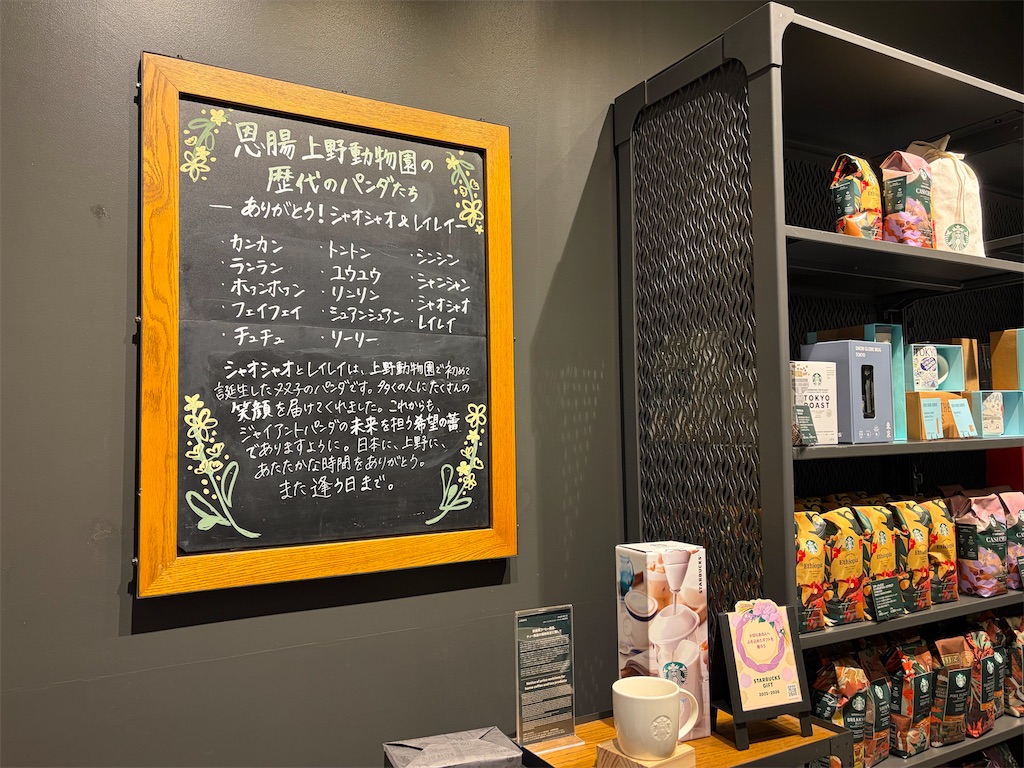 恩賜 上野動物園の
歴代のパンダたち
― ありがとう！シャオシャオ&レイレイ ―
・カンカン ・トントン ・シンシン
・ランラン ・ユウユウ ・ニャンニャン
・ホァンホァン ・リンリン ・シャオシャオ
・フェイフェイ ・シュアンシュアン レイレイ
・チュチュ ・リーリー
シャオシャオとレイレイは、上野動物園で初めて
誕生した双子のパンダです。多くの人にたくさんの
笑顔を届けてくれました。これからも、
ジャイアントパンダの未来を担う希望の蕾
でありますように。日本に、上野に、
あたたかな時間をありがとう。
また逢う日まで。
TOKYO
TOKYO
ROAST
Ethiopia
Ethiopia
STARBUCKS
STARBUCKS
GIFT
2025-2026